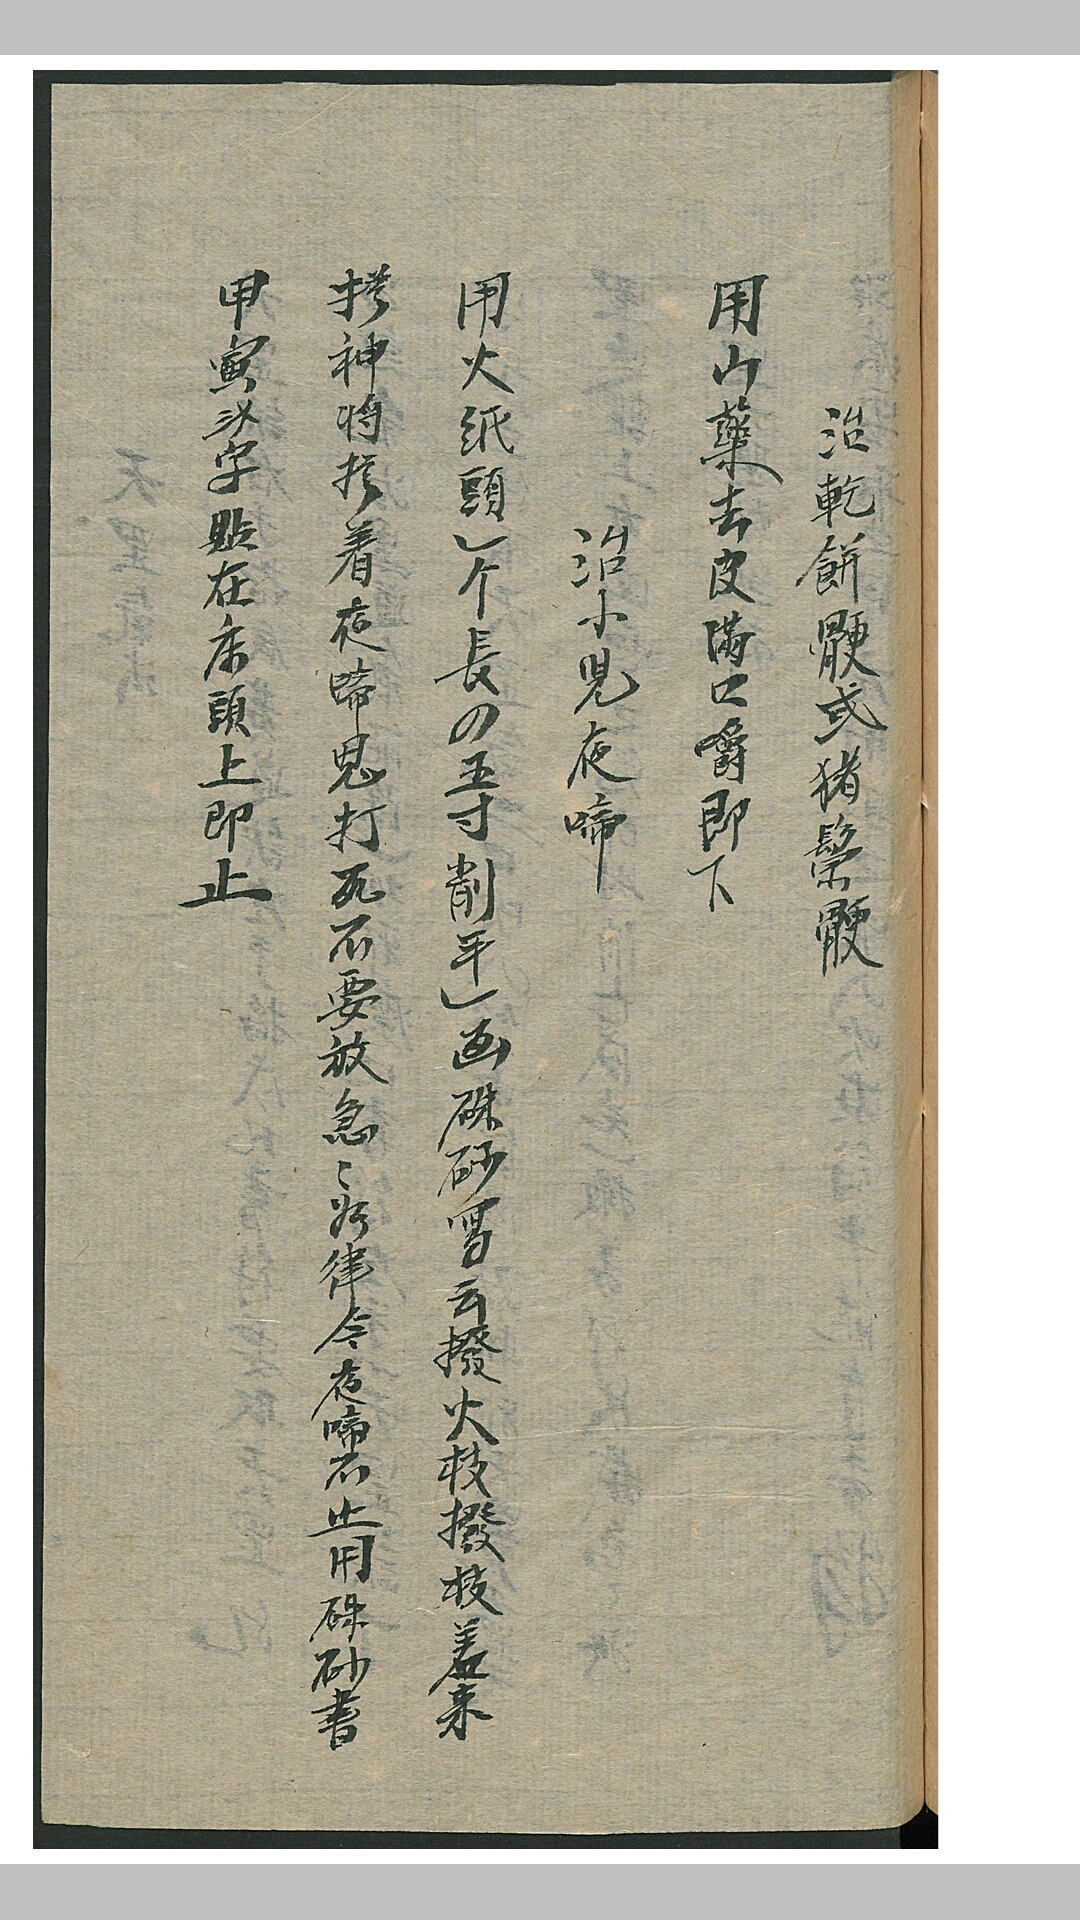 治乾餅骾或猪鬃骾
用山藥去皮滿口嚼即下
治小兒夜啼
用火紙頭一个長四五寸削平一面硃砂寫云撥火枝撥火枝盖来
神将捉着夜啼鬼打死不要放急〻如律令夜啼不止用硃砂書
甲寅二字貼在床頭上即止